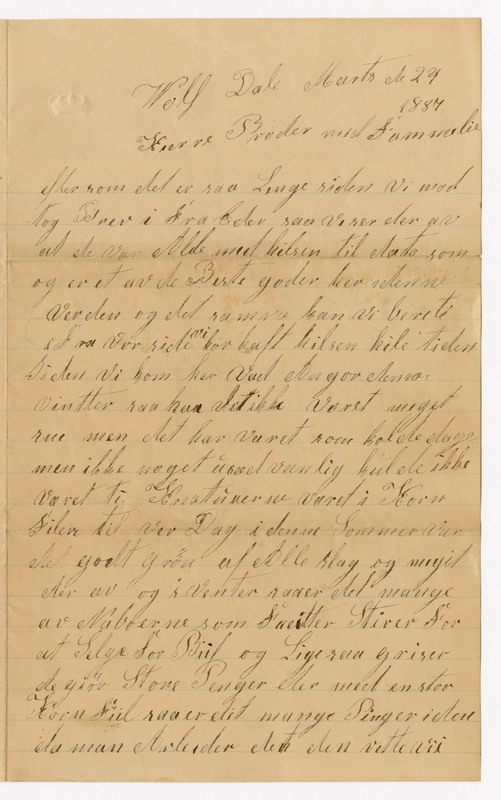 Wolf Dale Marts de 29
1887
Kierre Broder med Fammelie
efter som det er saa Lenge siden vi mod
tog Brev i Fra Eder saa viser der av
at de var Alde med hilsen til dato som
og er et av de Beste goder her i denne
Verden og det samra kan vi berete
i Fra vor side vi har haft hilsen hile tiden
siden vi kom her Vad Angor denne
vintter saa har det ikke været meget
sne men det har været som kolde dage
men ikke noget uaadvanlig kulde ikke
været ti Kreatuuerne været i Korn
Filen til ver Dag i denne Sommer var
de godt grön af Alle slag og megit
der av og i Venter saa er det mange
av Naboerne som Fuitter Stirer For
at Selge For Biif og Lige saa griser
de giör Store Penger eler med en stor
Korn Fiil saa er det mange Pinger i den
da man Arbeider det den vitte vii